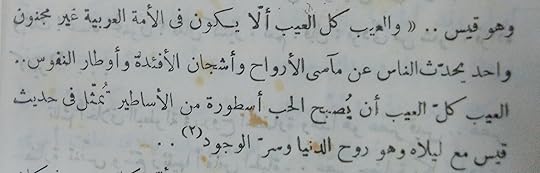 وهو قيس .. « والعيب كل العيب ألّا يكون فى الأمة العربية غير مجنون
واحد يحدّث الناس عن مآسى الأرواح وأشجان الأفئدة وأوطار النفوس..
العيب كلّ العيب أن يُصبح الحب أسطورة من الأساطير تُمثّل فى حديث
قيس مع ليلاه وهو روح الدنيا وسرّ الوجود(٢) ..